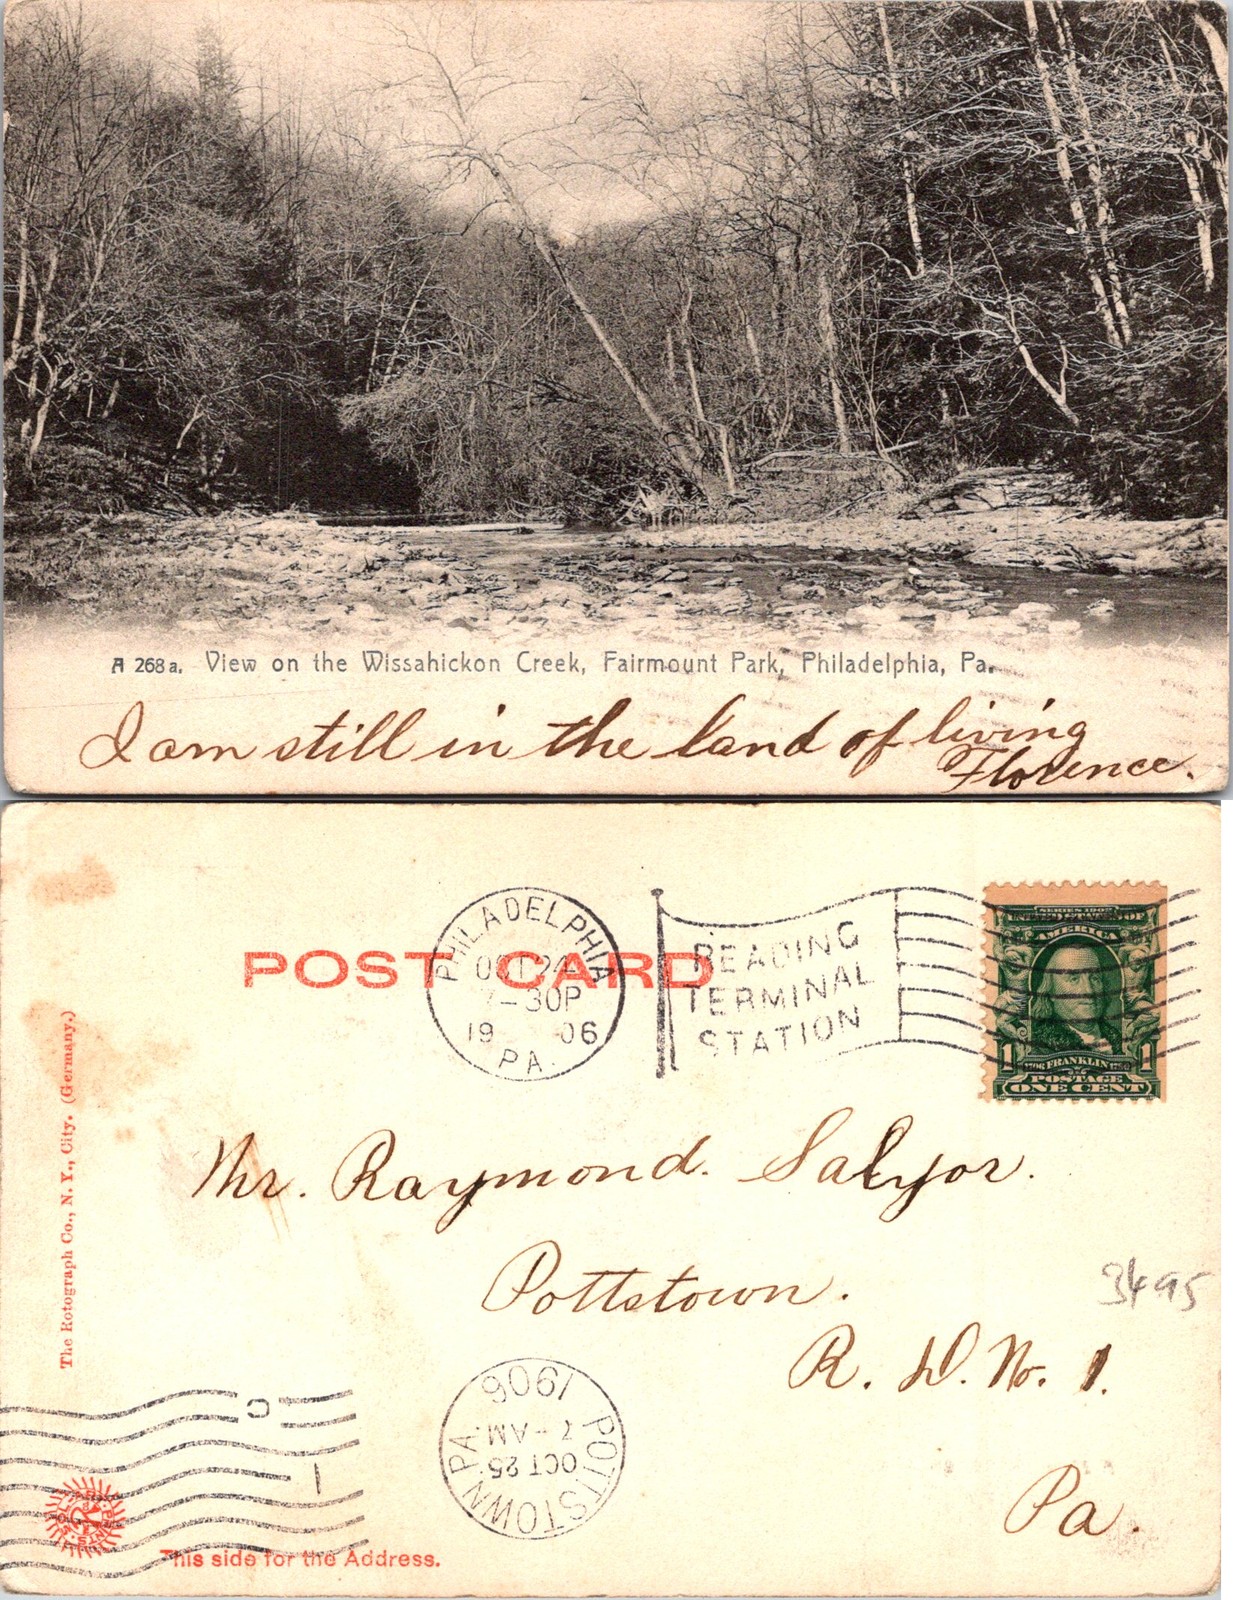 A 268 a. View on the Wissahickon Creek, Fairmount Park, Philadelphia, Pa.
I am still in the land of living
Florence.
POST CARD
PHILADELPHIA
OCT 24
7-30P
19 06
PA.
READING
TERMINAL
STATION
SERIES 1902
UNITED STATES OF
AMERICA
1 1
1706 FRANKLIN 1790
POSTAGE
ONE CENT
The Rotograph Co., N. Y., City. (Germany.)
Mr. Raymond. Salyor.
Pottstown.
3495
R. D. No. 1.
Pa.
POTTSTOWN PA.
OCT 25
7-AM
1906
C
1
This side for the Address.